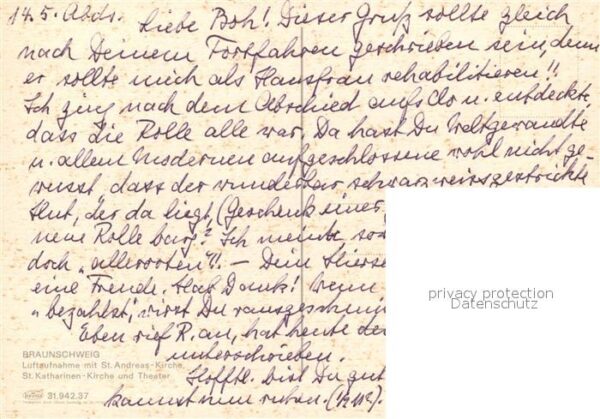 14.5. Abds. Liebe Boh! Dieser Gruß sollte gleich
nach Deinem Fortfahren geschrieben sein, denn
er sollte mich als Hausfrau rehabilitieren!!
Ich ging nach dem Abschied aufs Clo u. entdeckte,
dass die Rolle alle war. Da hast Du Weltgewandte
u. allem Modernen aufgeschlossene wohl nicht ge-
wusst, dass der wunderbar schwarzweissgestrickte
Hut, der da liegt, (Geschenk einer
neue Rolle barg? Ich meinte,
doch „allerorten"!! — Dem
eine Freude. Hab Dank! Wenn
„bezahlst", wirst Du
Eben rief R. an, hat heute den
unterschrieben.
Hofftl. bist Du gut
kannst nun ruhen.
BRAUNSCHWEIG
Luftaufnahme mit St. Andreas-Kirche,
St. Katharinen-Kirche und Theater
31.942.37
privacy protection
Datenschutz